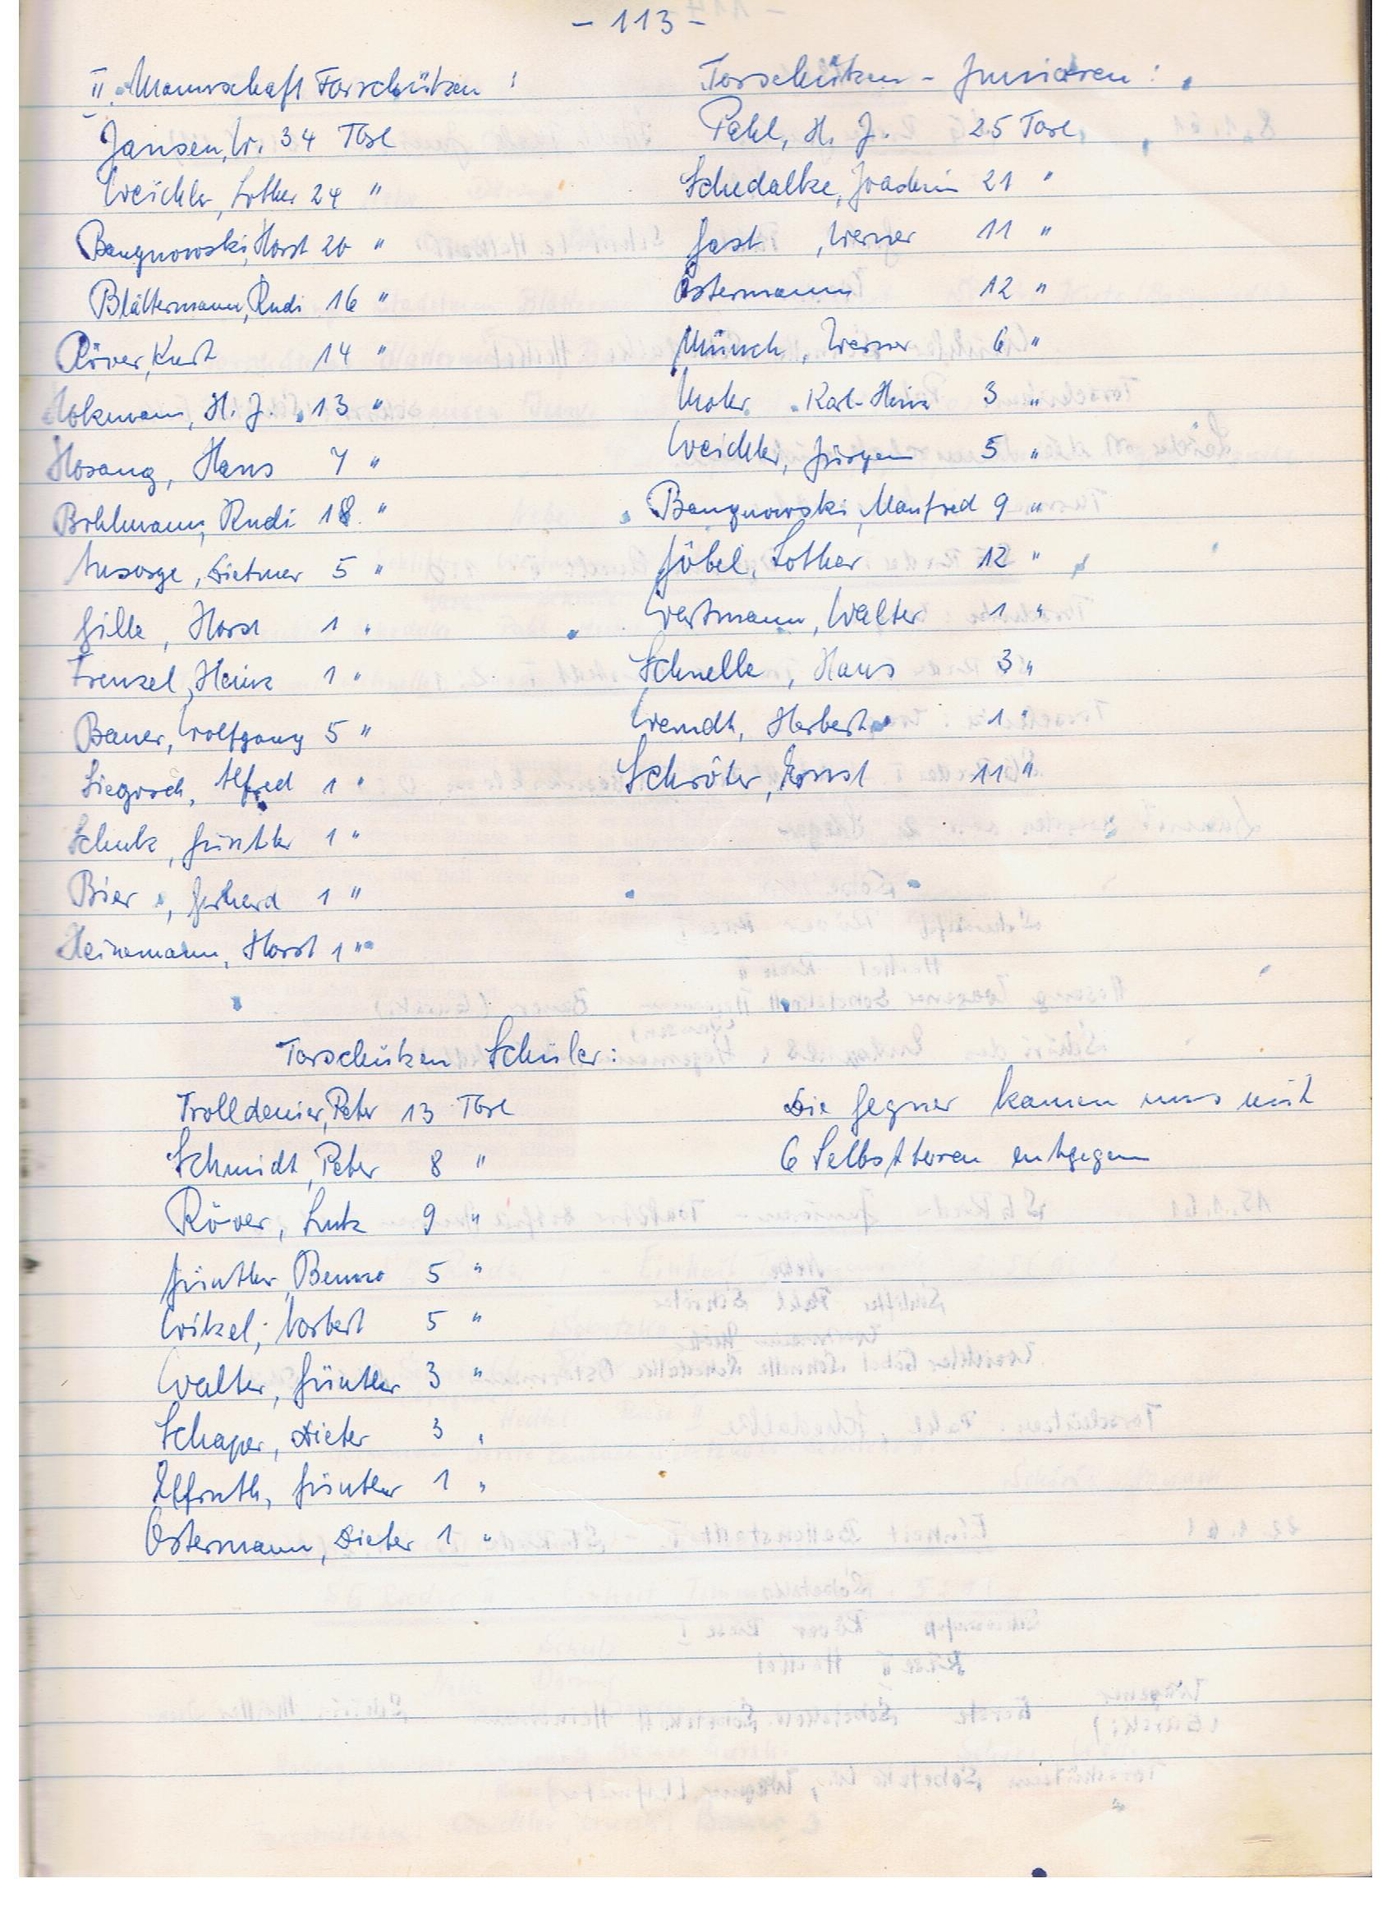 - 113 -
II. Mannschaft Torschützen :
Jansen, W. 34 Tore
Weichler, Lothar 24 "
Bangnowski, Horst 20 "
Blättermann, Rudi 16 "
Röver, Kurt 14 "
Hokmann, H. J. 13 "
Hosang, Hans 7 "
Bohlmann, Rudi 18 "
Ansorge, Dietmar 5 "
Gille, Horst 1 "
Frenzel, Heinz 1 "
Bauer, Wolfgang 5 "
Alfred 1 "
Schulz, Günther 1 "
Bier, Gerhard 1 "
Heinemann, Horst 1 "
Torschützen - Junioren :
Pahl, H. J. 25 Tore
Schedalke, Joachim 21 "
Gast, Werner 11 "
Ostermann 12 "
Münch, Werner 6 "
Mohr, Karl-Heinz 3 "
Weichler, Jürgen 5 "
Bangnowski, Manfred 9 "
Göbel, Lothar 12 "
Wertmann, Walter 1 "
Schnelle, Hans 3 "
Wendt, Herbert 1 "
Schröter, Ernst 11 "
Torschützen Schüler :
Trolldenier, Peter 13 Tore
Schmidt, Peter 8 "
Röver, Lutz 9 "
Günther, Benno 5 "
Witzel, Norbert 5 "
Walter, Günther 3 "
Schaper, Dieter 3 "
Elfruth, Günther 1 "
Ostermann, Dieter 1 "
Die Gegner kamen uns mit
6 Selbsttoren entgegen